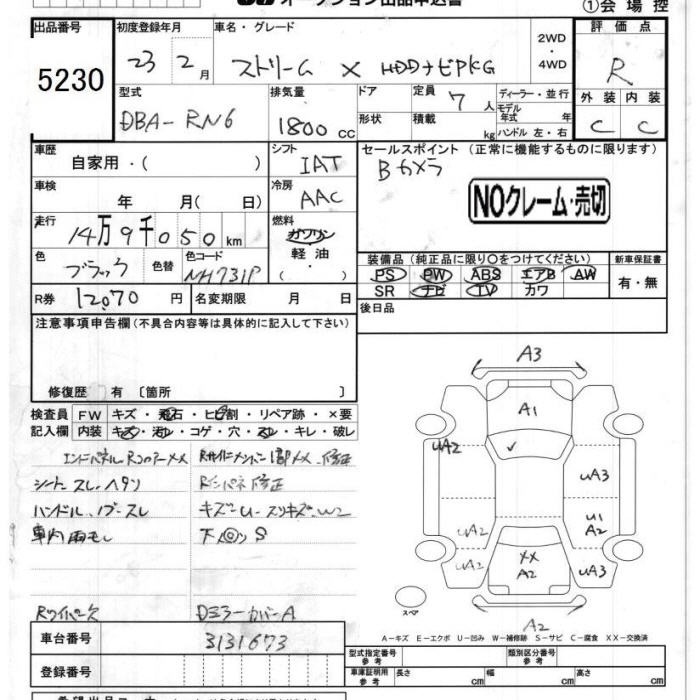 オークション出品申込書 ①会場控
出品番号 初度登録年月 車名・グレード 評価点
5230 23 2月 ストリーム X HDDナビPKG 2WD・4WD R
型式 排気量 ドア 定員 7人 ディーラー・並行 外装 内装
DBA-RN6 1800cc 形状 積載 kg モデル年式 年 ハンドル 左・右 C C
車歴 自家用・( ) シフト IAT セールスポイント (正常に機能するものに限ります)
Bカメラ
車検 年 月( 日) 冷房 AAC NOクレーム・売切
走行 14万9千050km 燃料 ガソリン
軽油・( )
色 ブラック 色替 色コード NH731P 装備品(純正品に限り○をつけてください) 新車保証書
PS PW ABS エアB AW 有・無
R券 12,070円 名変期限 月 日 SR ナビ TV カワ
注意事項申告欄(不具合内容等は具体的に記入して下さい) 後日品
修復歴 有〔箇所 〕
検査員 FW キズ・飛石・ヒビ割・リペア跡・×要
記入欄 内装 キズ・汚レ・コゲ・穴・スレ・キレ・破レ
エンドパネルRフロアーXX 修正
シートスレ、ヘタリ Rインパネ修正
ハンドル、ノブースレ キズーU-スリキズ、W2
車内雨モレ 下 S
Rワイパー欠 Dミラーカバー A
車台番号 3131673
登録番号
A3
A1
UA2
UA3
U1
A2
UA2
XX
A2
UA2
UA3
スペア
A2
A-キズ E-エクボ U-凹み W-補修跡 S-サビ C-腐食 XX-交換済
型式指定番号 参考 類別区分番号 参考
車庫証明用 参考 長さ cm 幅 cm 高さ cm